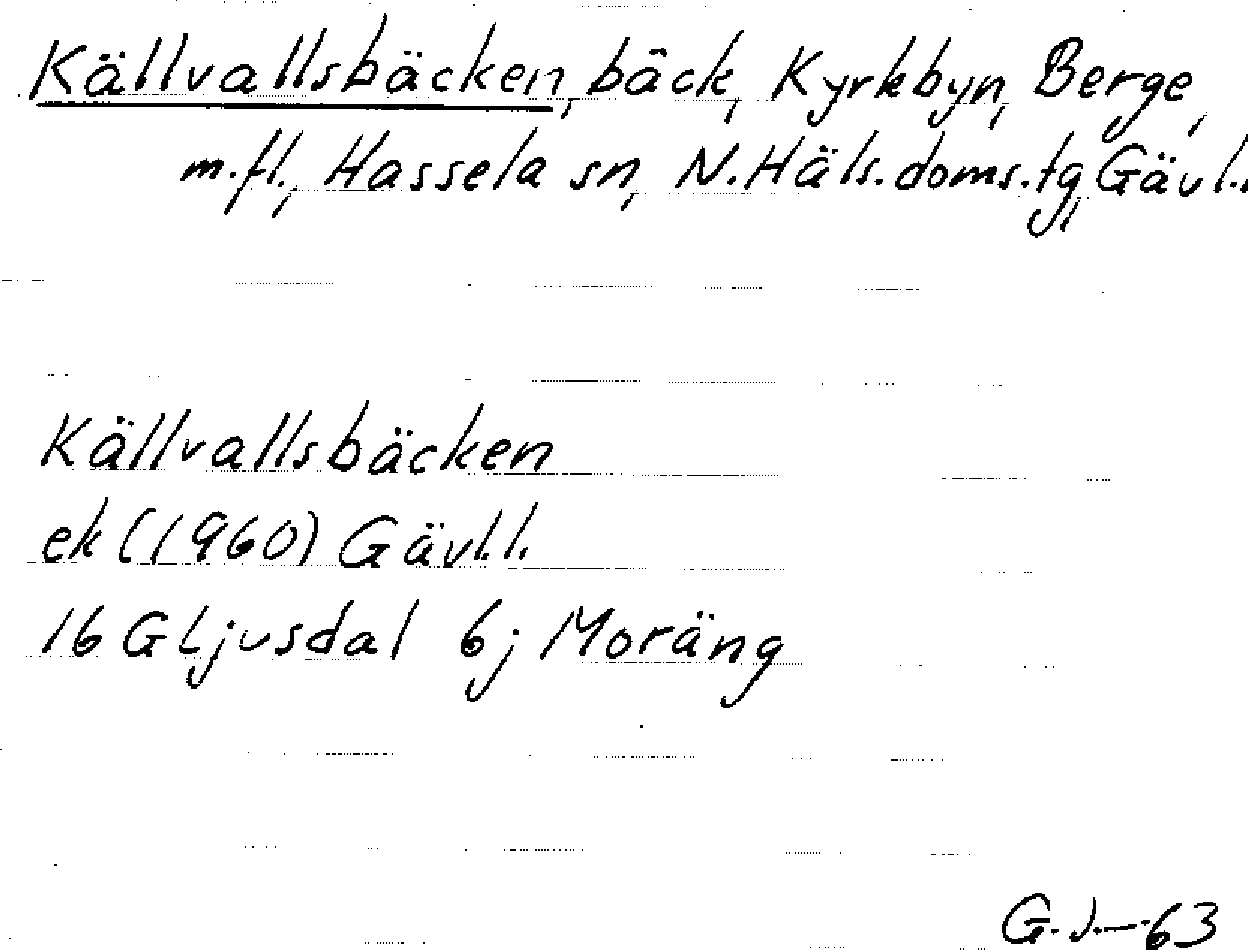 Källvallsbäcken, bäck, Kyrkbyn, Berge,
m.fl., Hassela sn, N.Häls.doms.tg, Gävl.l.
Källvallsbäcken
ek (1960) Gävl.l.
16 G Ljusdal 6j Moräng
G.J.-63